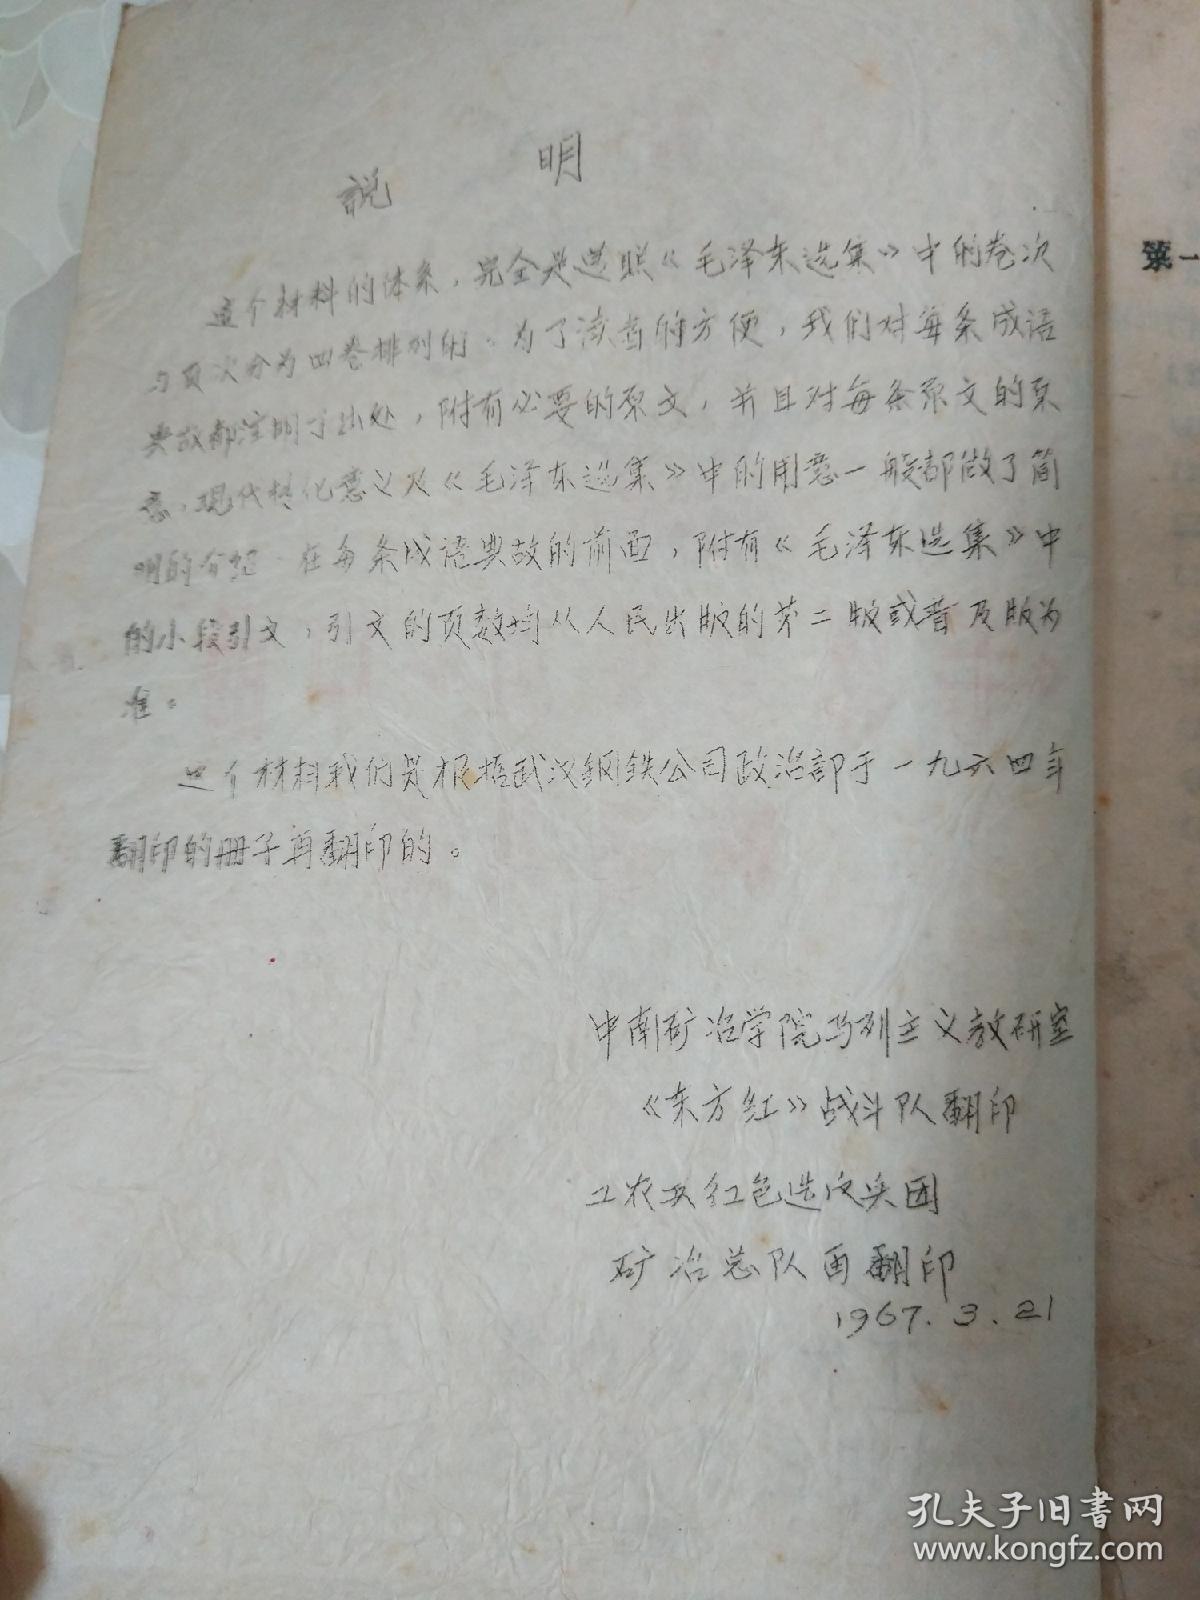 説 明
这个材料的体系，完全是遵照《毛泽东选集》中的卷次
与页次分为四卷排列的。为了读者的方便，我们对每条成语
典故都注明了出处，附有必要的原文，并且对每条原文的原
意，现代转化意义及《毛泽东选集》中的用意一般都做了简
明的介绍 在每条成语典故的前面，附有《毛泽东选集》中
的小段引文，引文的页数均从人民出版的第二版或普及版为
准。
这个材料我们是根据武汉钢铁公司政治部于一九六四年
翻印的册子再翻印的。
中南矿冶学院马列主义教研室
《东方红》战斗队翻印
工农兵红色造反兵团
矿冶总队再翻印
1967.3.21
第一
孔夫子旧书网
www.kongfz.com